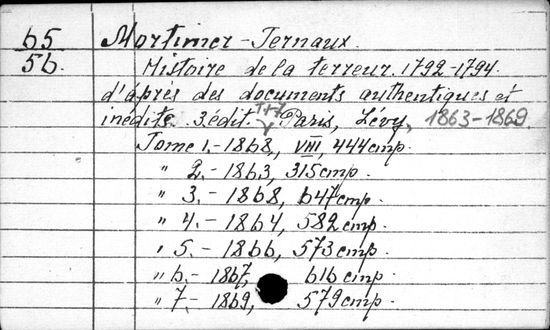 65 Mortimer-Ternaux.
56. Histoire de la terreur. 1792-1794.
d'après des documents authentiques et
inédits. 3.édit. T.1-7 Paris, Lévy, 1863-1869.
Tome 1.-1868, VIII, 444 стр.
" 2.-1863, 315 стр.
" 3.-1868, 647 стр.
" 4.-1864, 582 стр.
" 5.-1866, 573 стр.
" 6.-1867, 616 стр.
" 7.-1869, 579 стр.